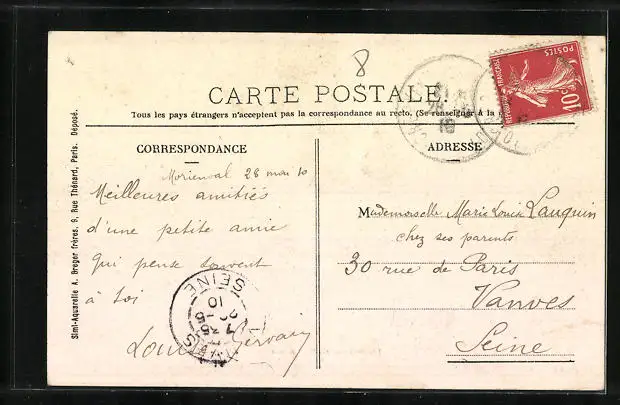 8
CARTE POSTALE
Tous les pays étrangers n'acceptent pas la correspondance au recto. (Se renseigner à la
CORRESPONDANCE
Morienval 28 mai 10
Meilleures amitiés
d'une petite amie
qui pense souvent
à toi
Gervain
ADRESSE
Mademoiselle Marie Louise Lauquin
chez ses parents
30 rue de Paris
Vanves
Seine
POSTES
REPUBLIQUE FRANÇAISE
10c
VANVES
SEINE
10
Simi-Aquarelle A. Breger frères, 9, Rue Thénard, Paris. Déposé.